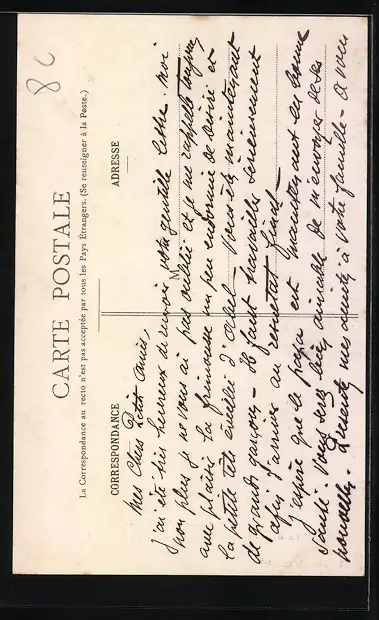 8c
CARTE POSTALE
La Correspondance au recto n'est pas acceptée par tous les Pays Étrangers. (Se renseigner à la Poste.)
CORRESPONDANCE
ADRESSE
M
Mes Chers Petits Amis,
J'ai été très heureux de recevoir votre gentille lettre. Moi
non plus je ne vous ai pas oubliés et je me rappelle toujours
avec plaisir la frimousse un peu endormie de et
la petite tête éveillée d'Abel. Vous êtes maintenant
de grands garçons. Il faut travailler sérieusement
afin d'arriver au résultat final.
J'espère que le papa est maintenant en bonne
santé. Vous serez bien aimable de m'envoyer de ses
nouvelles. Présentez mes amitiés à votre famille. A vous